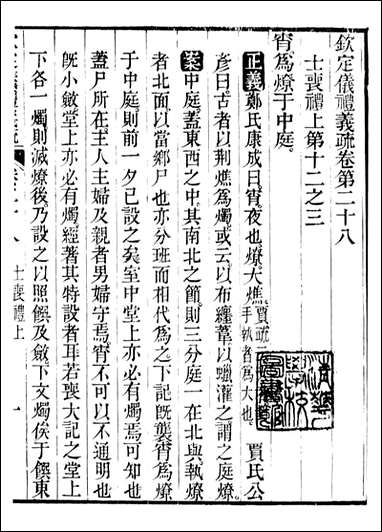 欽定儀禮義疏卷第二十八
士喪禮上第十二之三
宵為燎于中庭
正義鄭氏康成曰宵夜也燎大燋賈疏手執者為大也賈氏公
彥曰古者以荆燋為燭或云以布纏葦以蠟灌之謂之庭燎
案中庭蓋東西之中其南北之節則三分庭一在北與執燎
者北面以當鄉尸也亦分班而相代為之下記既襲宵為燎
于中庭則前一夕已設之矣室中堂上亦必有燭焉可知也
蓋尸所在主人主婦及親者男婦守焉宵不可以不通明也
既小斂堂上亦必有燭經著其特設者耳若喪大記之堂上
下各一燭則滅燎後乃設之以照饌及斂下文燭俟于饌東
士喪禮上
一